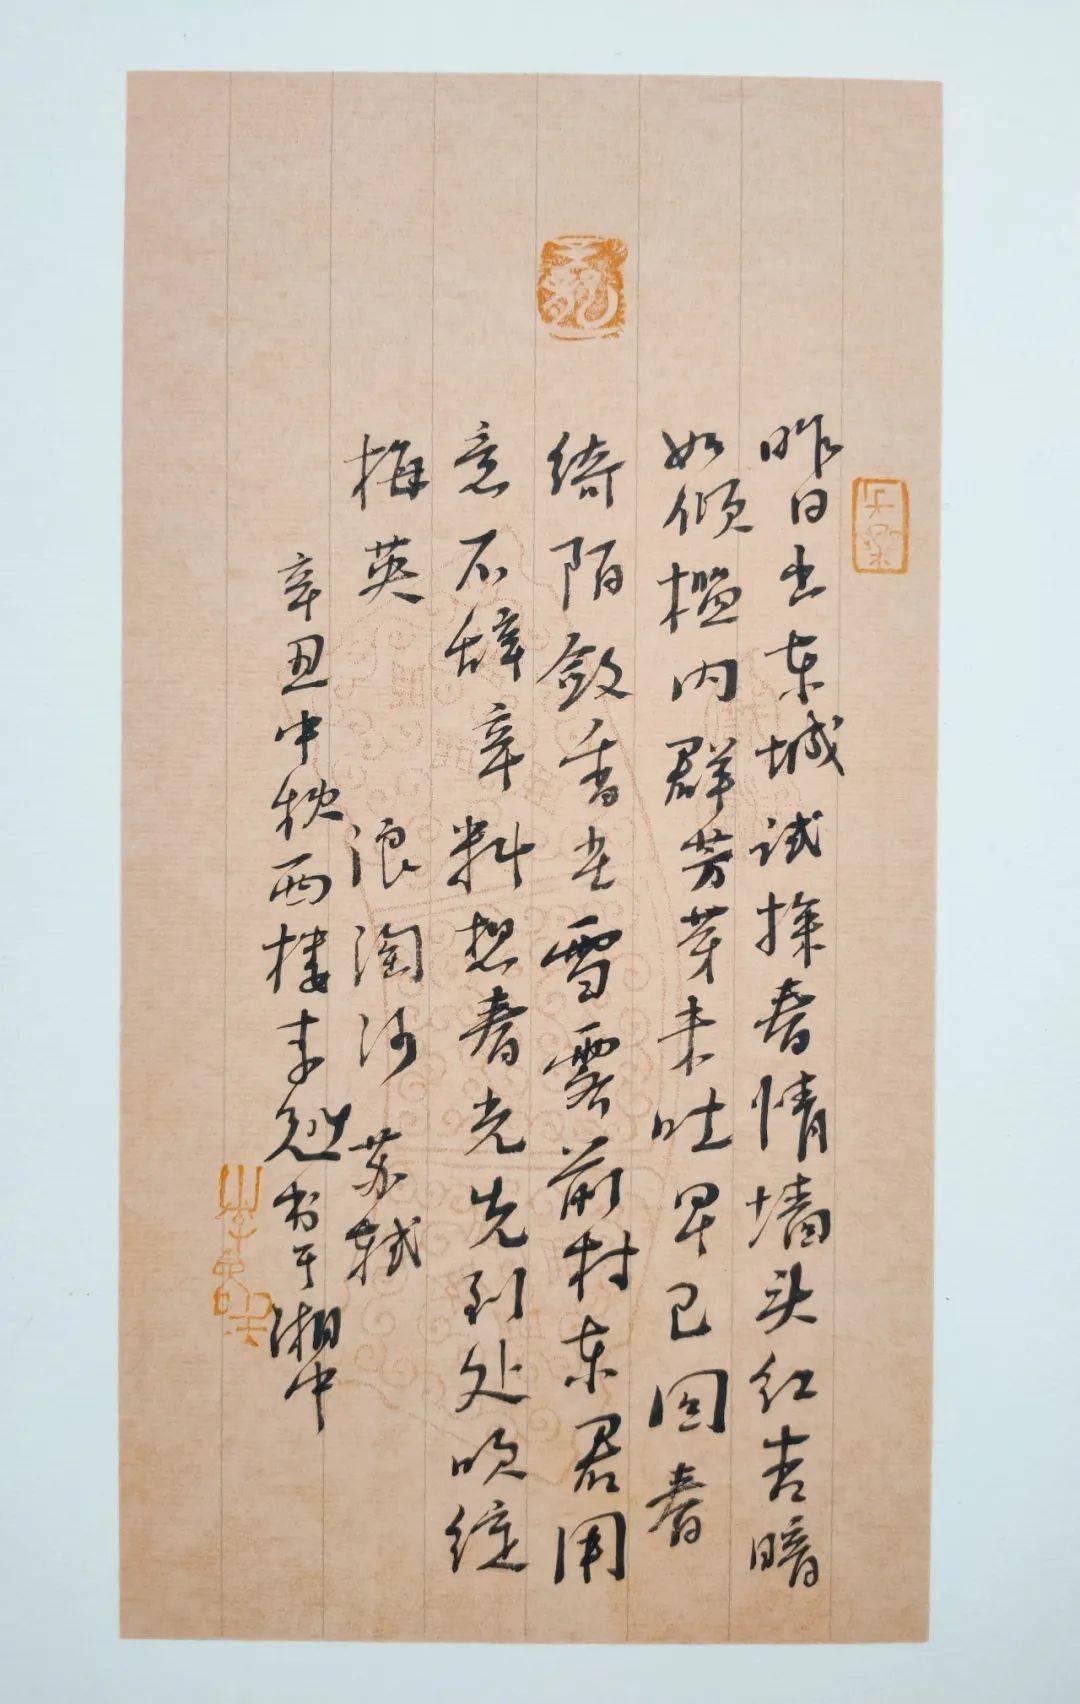 昨日出东城试探春情墙头红杏暗
如倾槛内群芳芽未吐早已回春
绮陌敛香尘雪霁前村东君用
意不辞辛料想春光先到处吹绽
梅英 浪淘沙 苏轼
辛丑中秋西楼李书于湘中